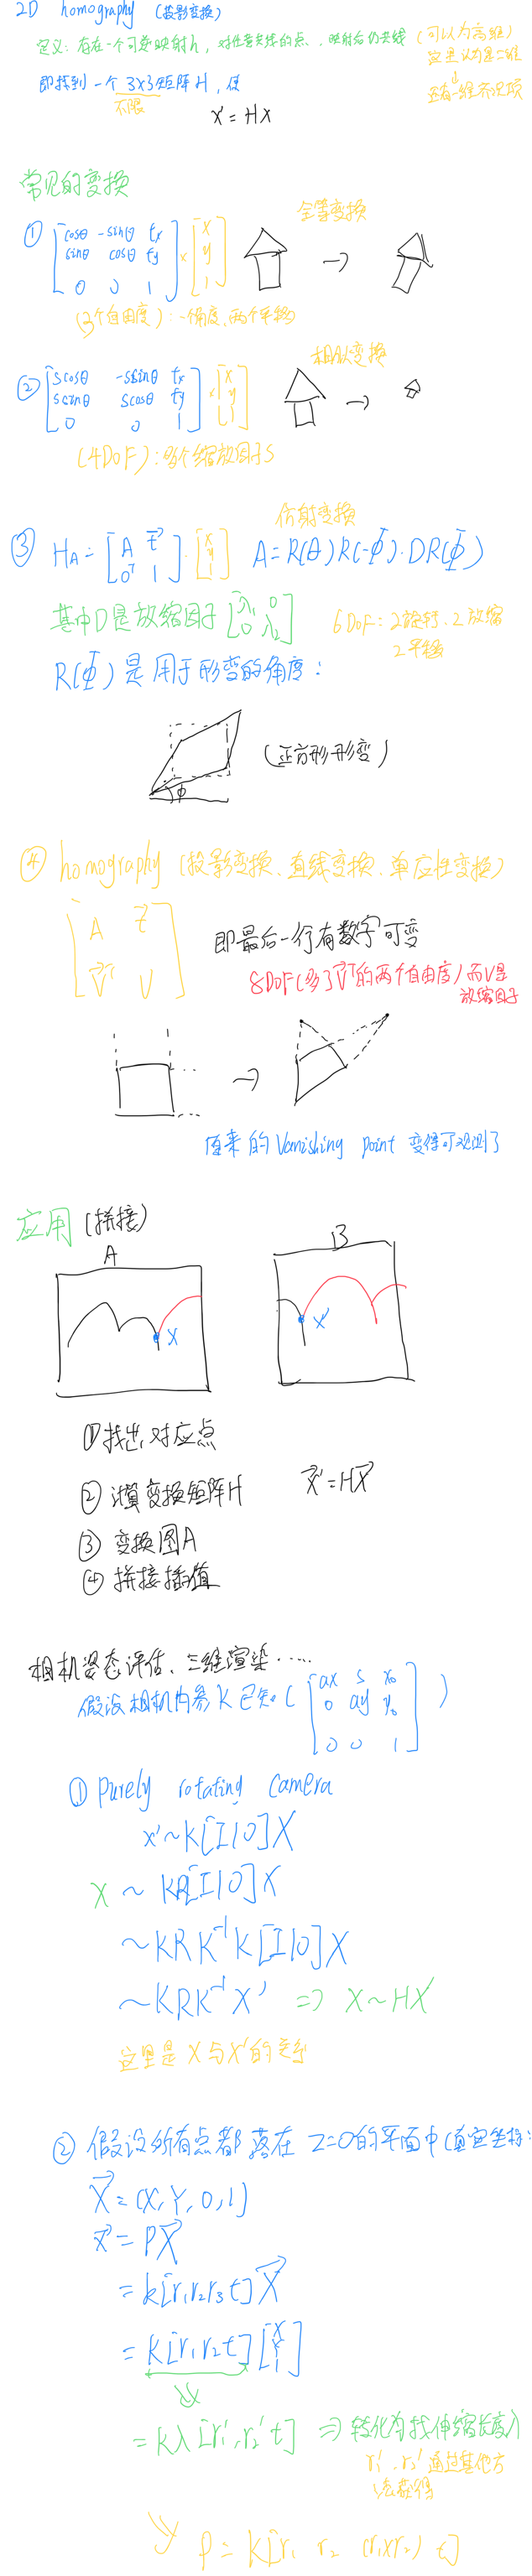 2D homography (投影变换)
定义: 存在一个可逆映射h, 对任意共线的点, 映射后仍共线 (可以为高维)
这里认为是二维
还有一维齐次项
即找到一个 3×3矩阵H, 使
不限
x' = Hx
常见的变换
① [cosθ -sinθ tx
sinθ cosθ ty
0 0 1] × [x y 1]
全等变换
(3个自由度): 一个角度, 两个平移
② [scosθ -ssinθ tx
ssinθ scosθ ty
0 0 1] · [x y 1]
相似变换
(4DoF): 多个缩放因子s
仿射变换
③ H_A = [A t⃗ 0ᵀ 1] · [x y 1] A = R(θ)R(-Φ)·DR(Φ)
其中D是放缩因子 [λ₁ 0 0 λ₂]
6DoF: 2旋转, 2放缩
2平移
R(Φ)是用于形变的角度:
ϕ
(正方形形变)
④ homography (投影变换、直线变换、单应性变换)
[A t⃗
V⃗ᵀ V]
即最后一行有数字可变
8DoF(多了V⃗ᵀ的两个自由度) 而V是
放缩因子
原来的 Vanishing point 变得可观测了
应用 (拼接)
A
B
x
x'
①找出对应点
②计算变换矩阵H x⃗' = Hx⃗
③变换图A
④拼接插值
相机姿态评估、三维渲染……
假设相机内参K已知 ( [ax s x₀
0 ay y₀
0 0 1] )
① Purely rotating camera
x' ~ K[I|0]X
x ~ KR[I|0]X
~ KRK⁻¹K[I|0]X
~ KRK⁻¹x' ⇒ x ~ Hx'
这里是 x 与 x' 的关系
② 假设所有点都落在 Z=0的平面中(真实坐标:
X⃗ = (X, Y, 0, 1)
x⃗ = PX⃗
= K[r₁r₂r₃t]X⃗
= K[r₁r₂t][X Y 1]
= Kλ[r₁', r₂' t] ⇒ 转化为找伸缩长度λ
r₁', r₂' 通过其他方
法获得
P = K[r₁ r₂ (r₁×r₂) t]